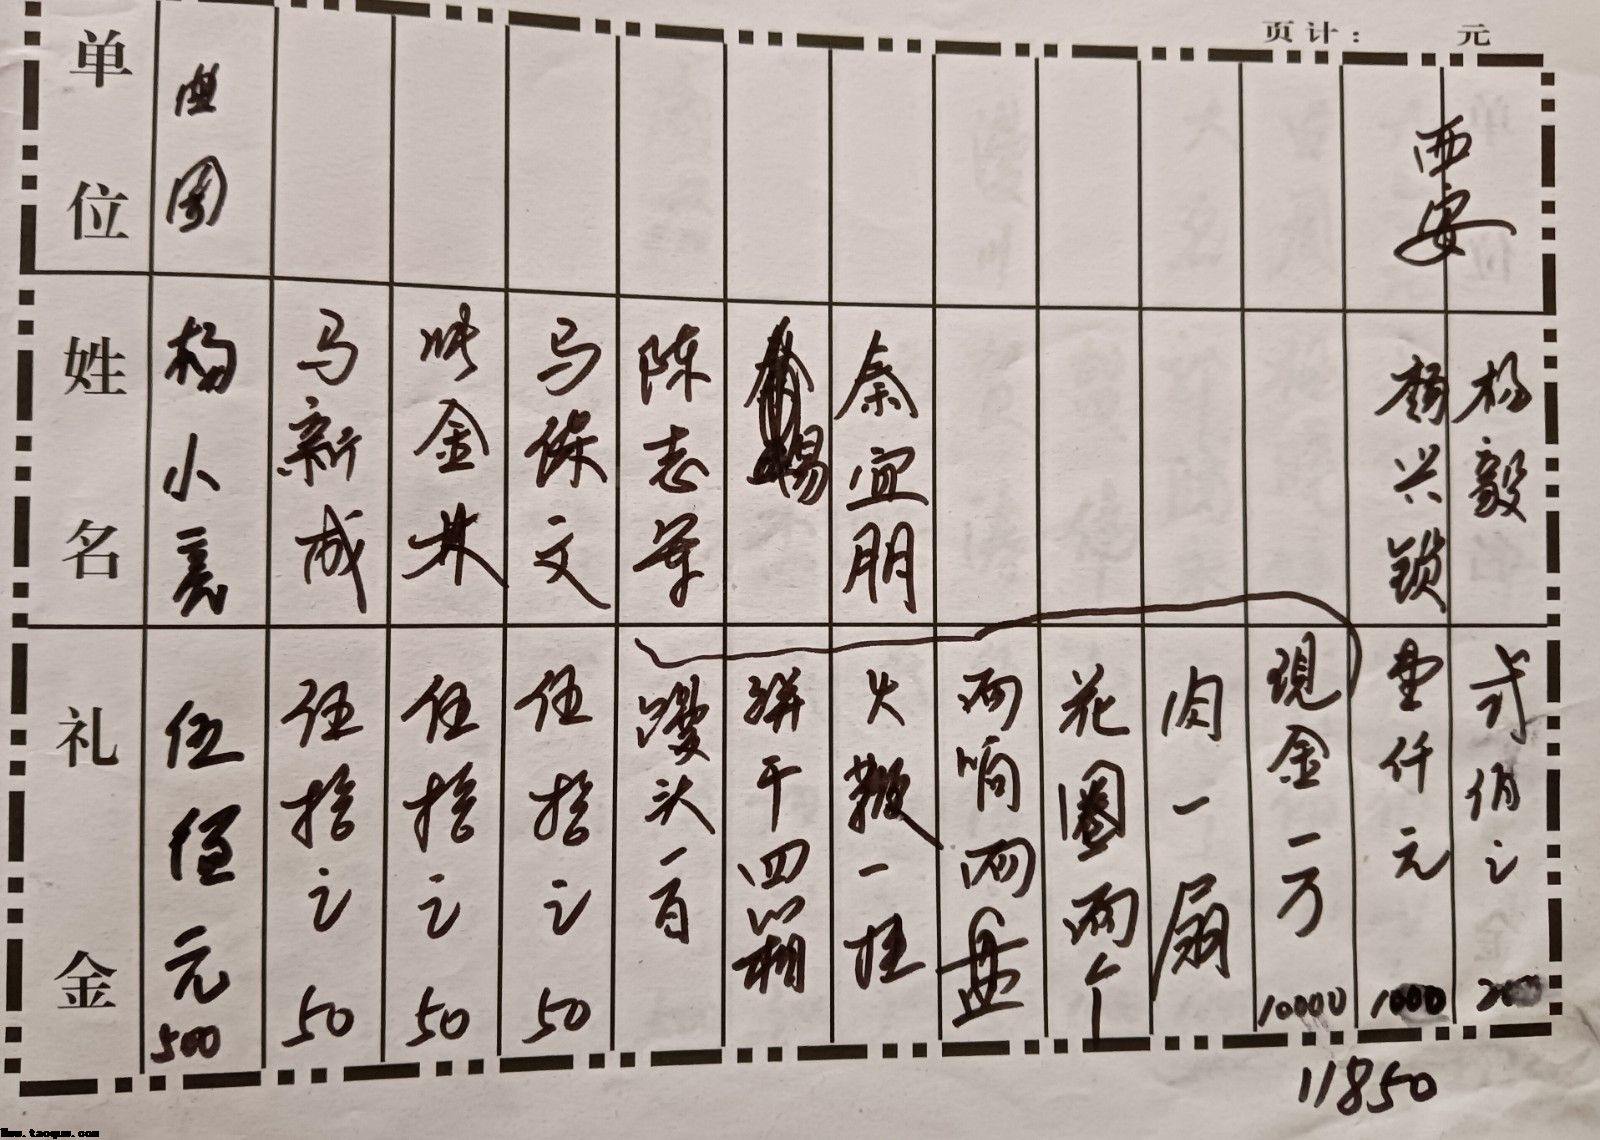 页计： 元
单位
姓名
礼金
杨小亮
伍佰元
500
马新成
伍拾元
50
金林
伍拾元
50
马保文
伍拾元
50
陈志
馒头一百
杨
饼干四箱
秦宜朋
火鞭一挂
两响两盘
花圈两个
肉一扇
现金一万
10000
西安
杨兴锁
壹仟元
1000
杨毅
弍佰元
200
11850
Www.taoquw.com